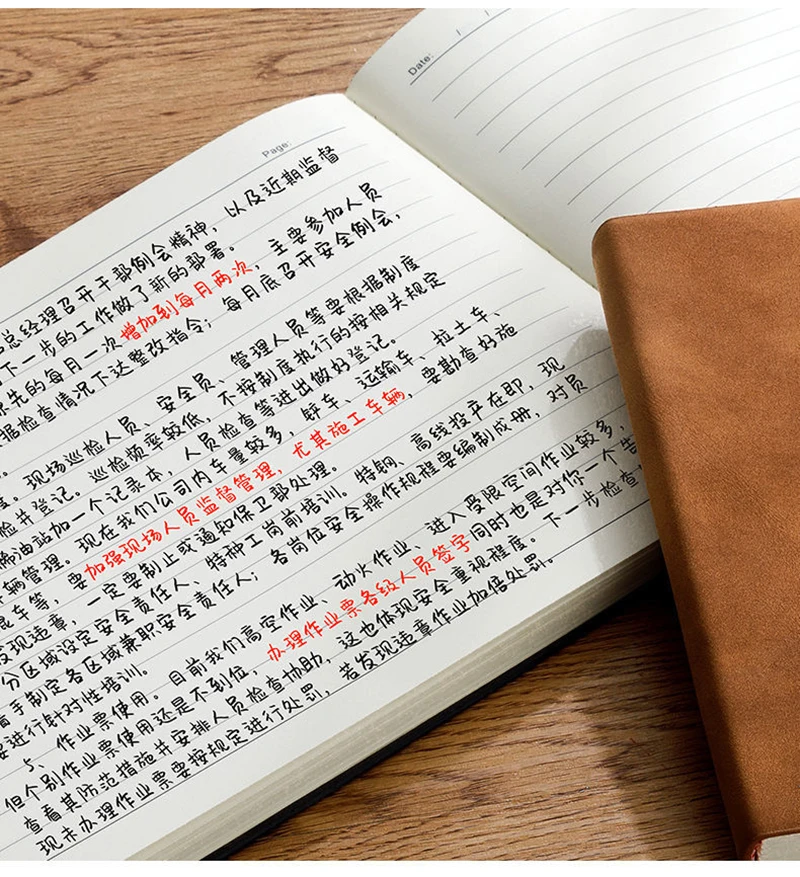 Date: / /
Page:
总经理召开干部例会精神，以及近期监督
下一步的工作做了新的部署。
原先的每月一次增加到每月两次，主要参加人员
据检查情况下达整改指令；每月底召开安全例会，
。现场巡检人员、安全员、管理人员等要根据制度
检并登记。巡检频率较低，不按制度执行的按相关规定
油站加一个记录本，人员检查等进出做好登记。
辆管理。现在我们公司内车量较多，铲车、运输车、拉土车、
混车等，要加强现场人员监督管理，尤其施工车辆，要勘查好施
发现违章，一定要制止或通知保卫部处理。
分区域设定安全责任人、特种工岗前培训。特钢、高线投产在即，现
手制定各区域兼职安全责任人；各岗位安全操作规程要编制成册，对员
要进行针对性培训。
5、作业票使用。目前我们高空作业、动火作业、进入受限空间作业较多，
但个别作业票使用还是不到位，办理作业票各级人员签字同时也是对你一个告
查看其防范措施并安排人员检查协助，这也体现安全重视程度。下一步检查
现未办理作业票要按规定进行处罚，若发现违章作业加倍处罚。